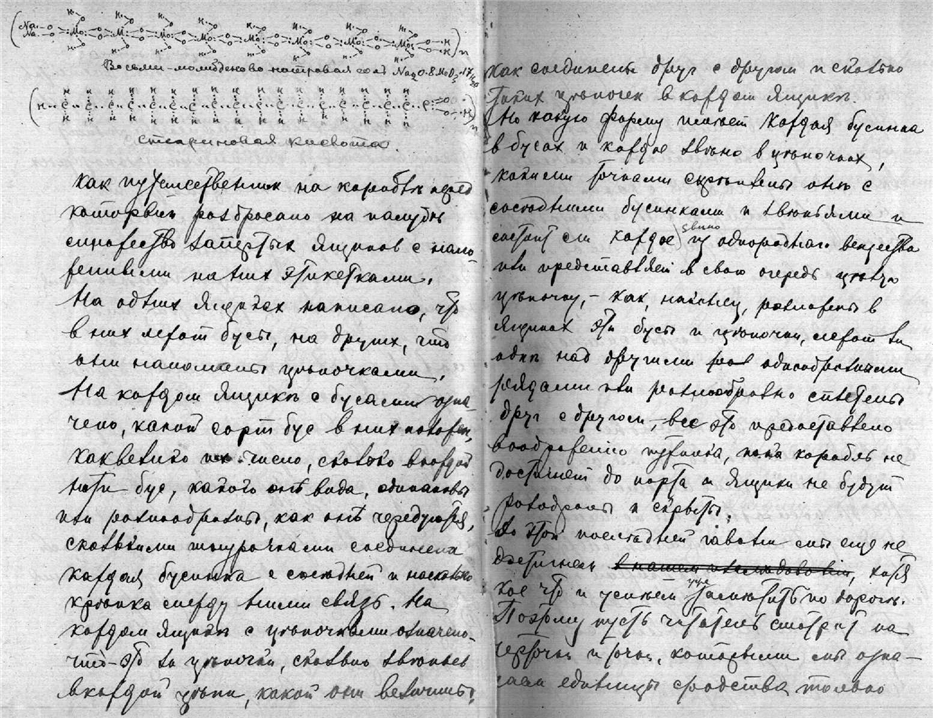 Восьми-молибденово натровая соль Na2O.8MoO3.17H2O
Стеариновая кислота.
как путешественник на корабле перед
которым разбросано на палубе
множество запертых ящиков с нало-
женными на них этикетками.
На одних ящиках написано, что
в них лежат бусы, на других, что
они наполнены цепочками.
На каждом ящике с бусами озна-
чено, какой сорт бус в них положен,
как велико их число, сколько в каждой
нити бус, какого они вида, одинаковы
или разнообразны, как они чередуются,
сколькими шнурочками соединена
каждая бусинка с соседней и насколько
крепка между ними связь. На
каждом ящике с цепочками означено
что это за цепочки, сколько звеньев
в каждой цепи, какой они величины,
как соединены друг с другом и сколько
таких цепочек в каждом ящике.
Но какую форму имеет каждая бусинка
в бусах и каждое звено в цепочках,
какими точками скреплены они с
соседними бусинками и звеньями и
состоит ли каждое звено из однородного вещества
или представляет в свою очередь целую
цепочку, - как, наконец, разложены в
ящиках эти бусы и цепочки, лежат ли
одни над другими однообразными
рядами или разнообразно сплетены
друг с другом, все это предоставлено
воображению путника, пока корабль не
достигнет до порта и ящики не будут
разобраны и вскрыты.
До этой последней гавани мы еще не
достигли, хотя
кое что и успели уже по дороге.
Поэтому пусть читатель смотрит на
черточки и точки, которыми мы озна-
чаем единицы сродства только